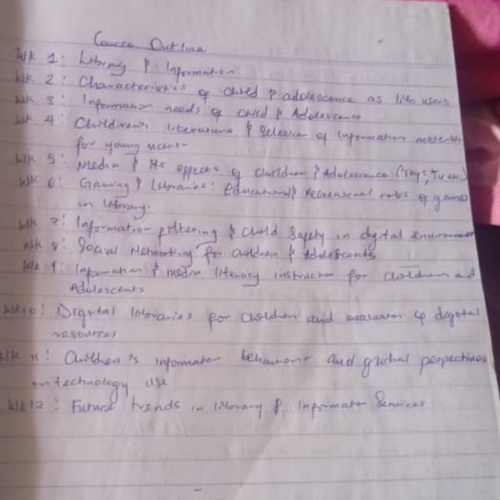 Course Outline
WK 1: Library & Information
WK 2: Characteristics of child & adolescence as lib users
WK 3: Information needs of child & Adolescence
WK 4: Children's literature & Selection of Information materials
for young users
WK 5: Media & its effects of children & Adolescence (Toys, TV
WK 6: Gaming & Libraries: Educational & Recreational roles of games
in Library.
WK 7: Information filtering & Child Safety in digital environment
WK 8: Social Networking for children & Adolescents
WK 9: Information & media literacy instruction for children and
Adolescents
WK10: Digital libraries for children and evaluation of digital
resources
WK 11: Children's information behaviour and global perspectives
on technology use
WK12: Future trends in Library & Information Services